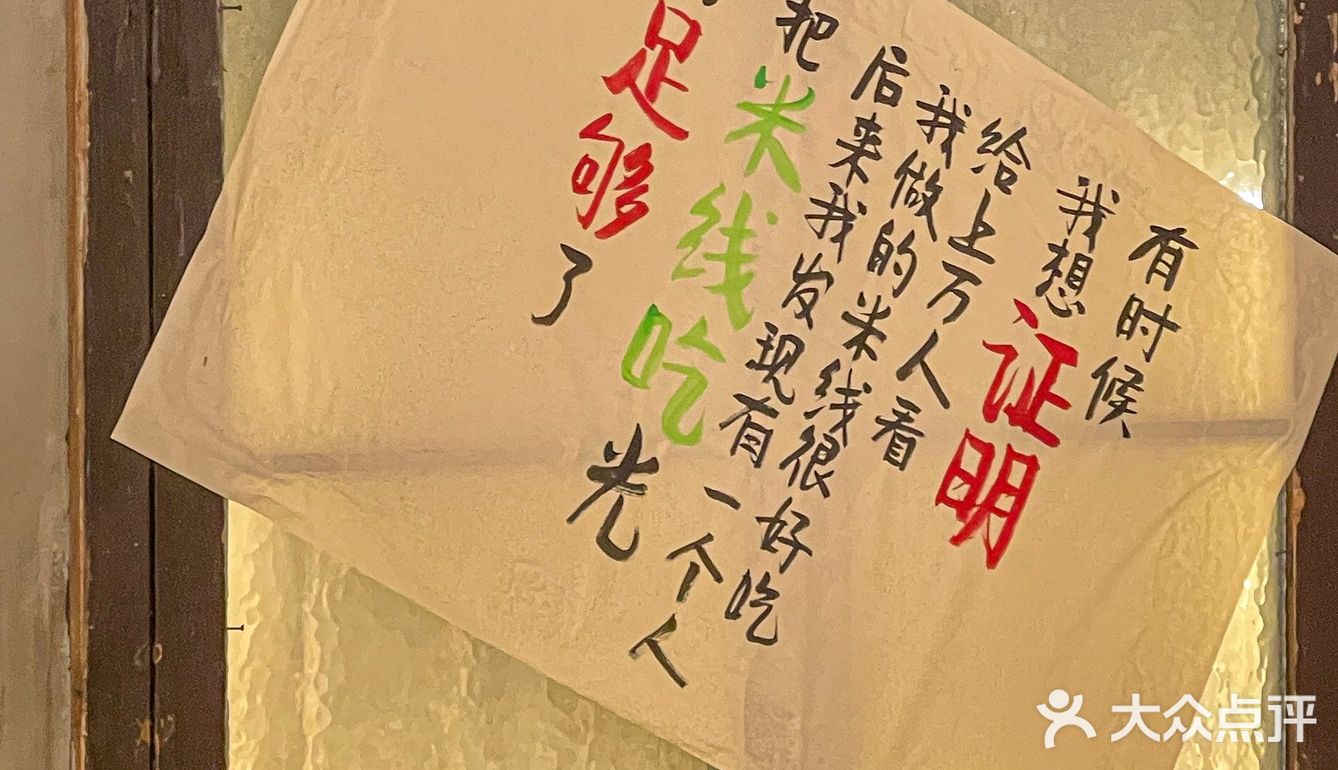 有时候
我想证明
给上万人看
我做的米线很好吃
后来我发现有一个人
把米线吃光
足够了
大众点评